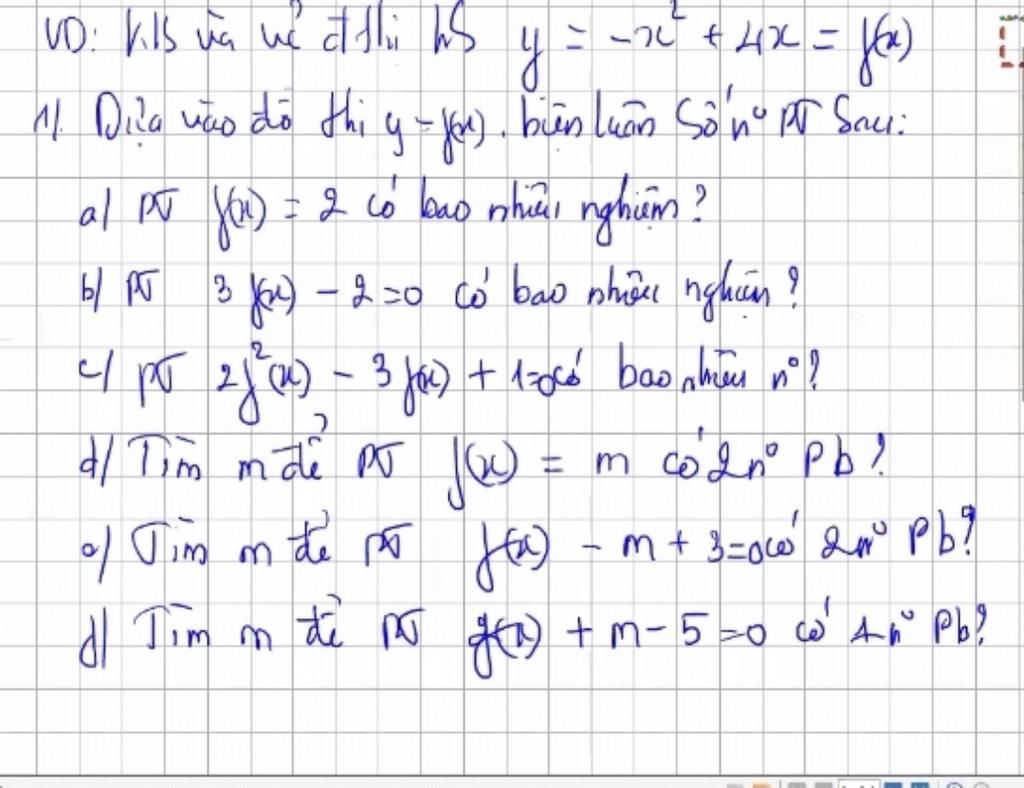 VD: KS và vẽ đ thị hS y = -x² + 4x = f(x)
1/. Dựa vào đồ thị y = f(x). biện luận Số n⁰ PT Sau:
a/ PT f(x) = 2 có bao nhiêu nghiệm?
b/ PT 3 f(x) - 2 = 0 có bao nhiêu nghiệm?
c/ PT 2f²(x) - 3 f(x) + 1 = 0 có bao nhiêu n⁰?
d/ Tìm m để PT f(x) = m có 2 n⁰ Pb?
e/ Tìm m để PT f(x) - m + 3 = 0 có 2 n⁰ Pb?
f/ Tìm m để PT f(x) + m - 5 = 0 có 1 n⁰ Pb?